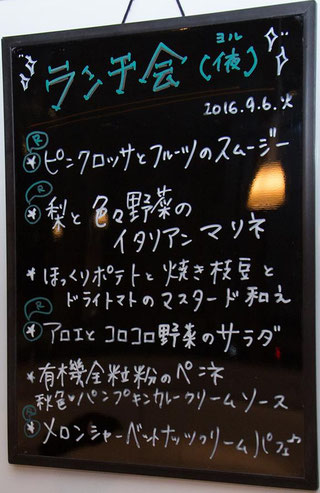 ヨル
ランチ会(夜)
2016.9.6.火
R
* ピンクロッサとフルーツのスムージー
R
* 梨と色々野菜の
イタリアンマリネ
* ほっくりポテトと焼き枝豆と
ドライトマトのマスタード和え
R
* アロエとコロコロ野菜のサラダ
* 有機全粒粉のペンネ
秋色パンプキンカレークリームソース
R
* メロンシャーベットナッツクリームパフェ♪